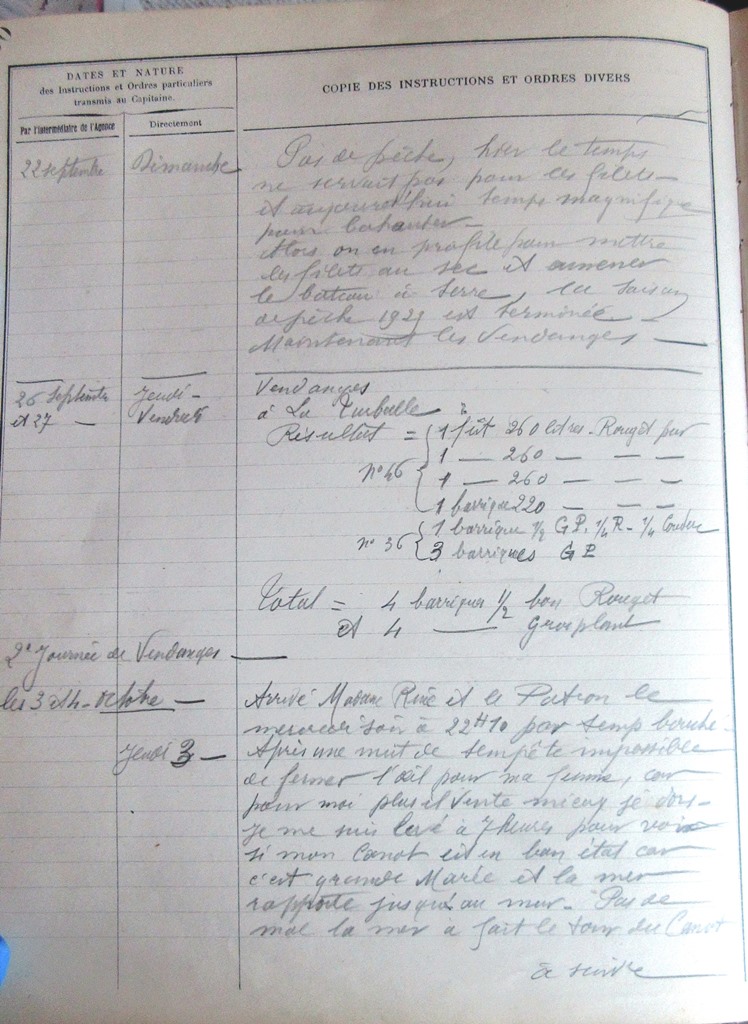 DATES ET NATURE
des Instructions et Ordres particuliers
transmis au Capitaine.
COPIE DES INSTRUCTIONS ET ORDRES DIVERS
Par l'intermédiaire de l'Agence
Directement
22 septembre Dimanche
Pas de pêche, hier le temps
ne servait pas pour les filets -
et aujourd'hui temps magnifique
pour
Alors on en profite pour mettre
les filets au sec et amener
le bateau à terre, la saison
de pêche 1929 est terminée -
Maintenant les Vendanges -
26 Septembre Jeudi -
et 27 - Vendredi
Vendanges
à La Turballe
Résultat = 1 fût 260 litres - Rouget pur
n° 46
1 - 260 - - -
1 - 260 - - -
1 barrique 220 - - -
n° 36
1 barrique 1/2 G P. 1/4 R - 1/4
3 barriques G P
Total = 4 barriques 1/2 bon Rouget
et 4 - Grosplant
2e Journée de Vendanges -
les 3 et 4 - Octobre -
Arrivé Madame René et le Patron le
mercredi soir à 22H10 par temp bouché -
Jeudi 3 -
Après une nuit de tempête impossible
de fermer l'œil pour ma femme, car
pour moi plus il vente mieux je dors -
Je me suis levé à 7 heures pour voir
si mon Canot est en bon état car
c'est grande Marée et la mer
rapporte jusqu'au mur - Pas de
mal la mer a fait le tour du Canot
à suivre